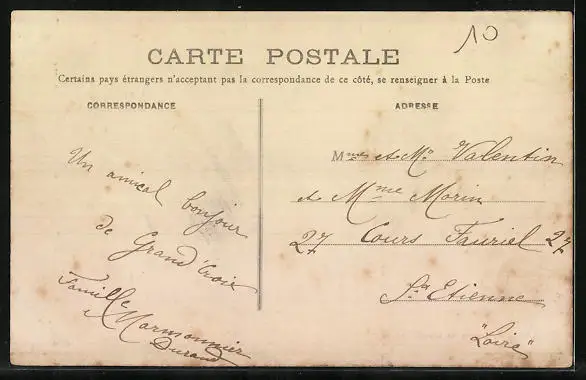 10
CARTE POSTALE
Certains pays étrangers n'acceptant pas la correspondance de ce côté, se renseigner à la Poste
CORRESPONDANCE
Un amical bonjour
de Grand'Croix
Famille
Marmonnier
Durand
ADRESSE
Mmes et Mr Valentin
et Mme Morin
27 Cours Fauriel 27
St Etienne
"Loire"